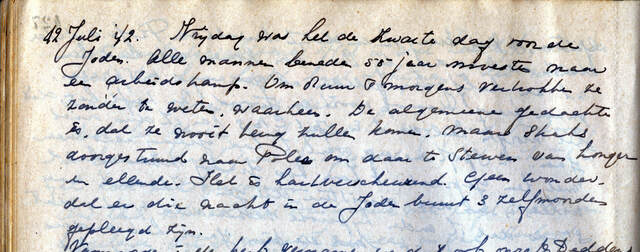 12 Juli '42. Vrijdag was het de zwarte dag voor de
Joden. Alle mannen beneden 55 jaar moesten naar
een arbeidskamp. Om 2 uur 's morgens vertrokken ze
zonder te weten, waarheen. De algemeene gedachte
is, dat ze nooit terug zullen komen, maar
doorgestuurd naar Polen om daar te sterven van honger
en ellende. Het is hartverscheurend. Geen wonder
dat er die nacht in de Joden buurt 3 zelfmoorden
gepleegd zijn.
in de kerk